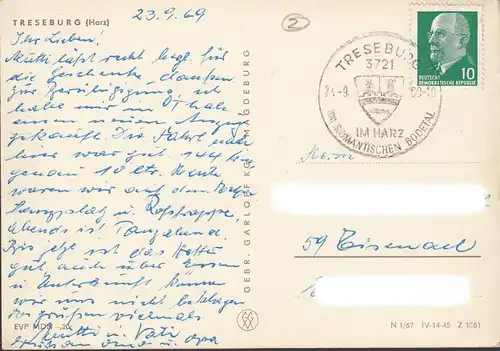 TRESEBURG (Harz)
23.9.69
2
Ihr Lieben!
Mutti läßt recht herzl. für
die Geschenke danken
zur Bestätigung, ich
habe mir in Thale
einen neuen Anzug
gekauft. Die Fahrt nach
hier war gut. 144 km
genau 10 ltr. Heute
waren wir auf dem
Tanzplatz u. Roßtrappe,
abends ist Tanzabend.
Bis jetzt ist das Wetter
gut, auch über Essen
u. Unterkunft können
wir uns nicht beklagen
Es grüßen vielmals
Mutti u. Vati
Oma u. Opa
EVP MDN -,20
GEBR. GARLOFF KG MAGDEBURG
TRESEBURG
3721
24.-9. 69-18
IM HARZ
IM ROMANTISCHEN BODETAL
DEUTSCHE
DEMOKRATISCHE REPUBLIK
10
59 Eisenach
N 1/67 IV-14-45 Z 1081